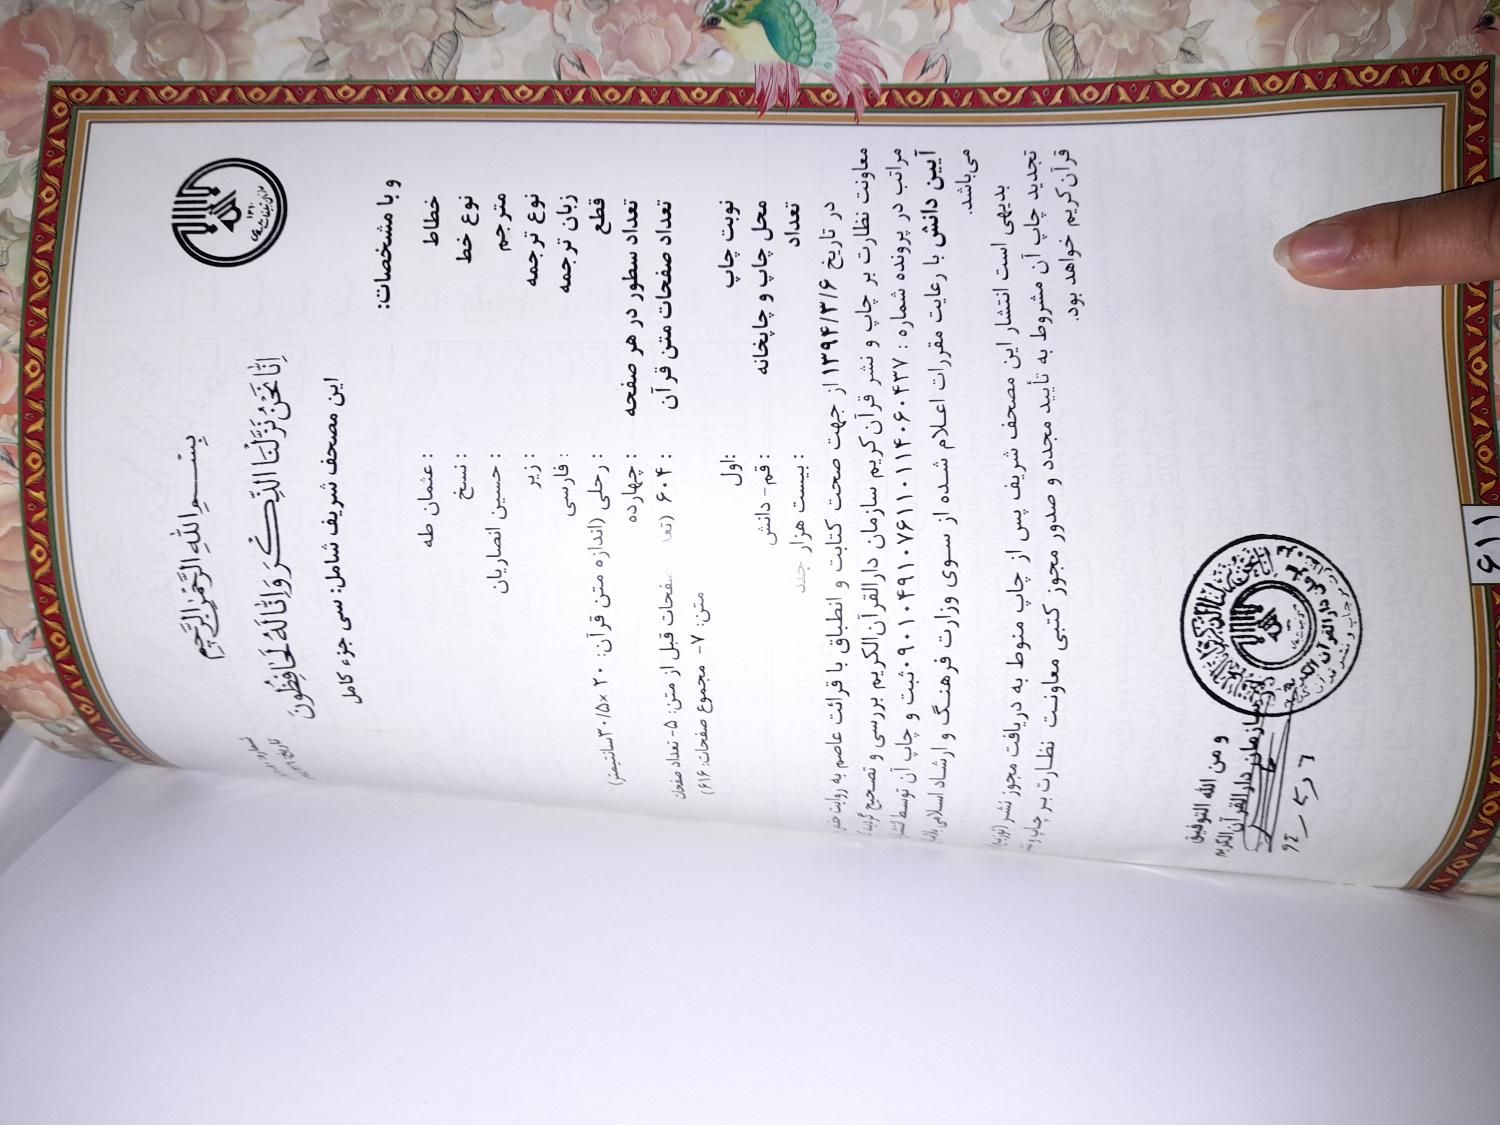 بِسْمِ اللهِ الرَّحْمٰنِ الرَّحِیمِ
إِنَّا نَحْنُ نَزَّلْنَا الذِّكْرَ وَإِنَّا لَهُ لَحَافِظُونَ
این مصحف شریف شامل: سی جزء کامل
و با مشخصات:
خطاط : عثمان طه
نوع خط : نسخ
مترجم : حسین انصاریان
نوع ترجمه : زیر
زبان ترجمه : فارسی
قطع : رحلی (اندازه متن قرآن: ۲۰ ×۳۰/۵سانتیمتر)
تعداد سطور در هر صفحه : چهارده
تعداد صفحات متن قرآن : ۶۰۴ صفحات قبل از متن: ۵- تعداد صفحات
متن: ۷- مجموع صفحات: ۶۱۶)
نوبت چاپ :اول
محل چاپ و چاپخانه : قم- دانش
تعداد : بیست هزار جلد
در تاریخ ۱۳۹۴/۳/۶ از جهت صحت کتابت و انطباق با قرائت عاصم به روایت
معاونت نظارت بر چاپ و نشر قرآن‌کریم سازمان دارالقرآن‌الکریم بررسی و تصحیح
مراتب در پرونده شماره : ۰۹۰۱۰۴۹۱۰۷۶۱۱۰۱۱۴۰۶۰۴۳۷ ثبت و چاپ آن توسط
آیین دانش با رعایت مقررات اعلام شده از سوی وزارت فرهنگ و ارشاد اسلامی
می‌باشد.
بدیهی است انتشار این مصحف شریف پس از چاپ منوط به دریافت مجوز نشر (توزیع)
تجدید چاپ آن مشروط به تأیید مجدد و صدور مجوز کتبی معاونت نظارت بر چاپ و
قرآن‌کریم خواهد بود.
و من الله التوفیق
سازمان دارالقرآن الکریم
۶۱۱